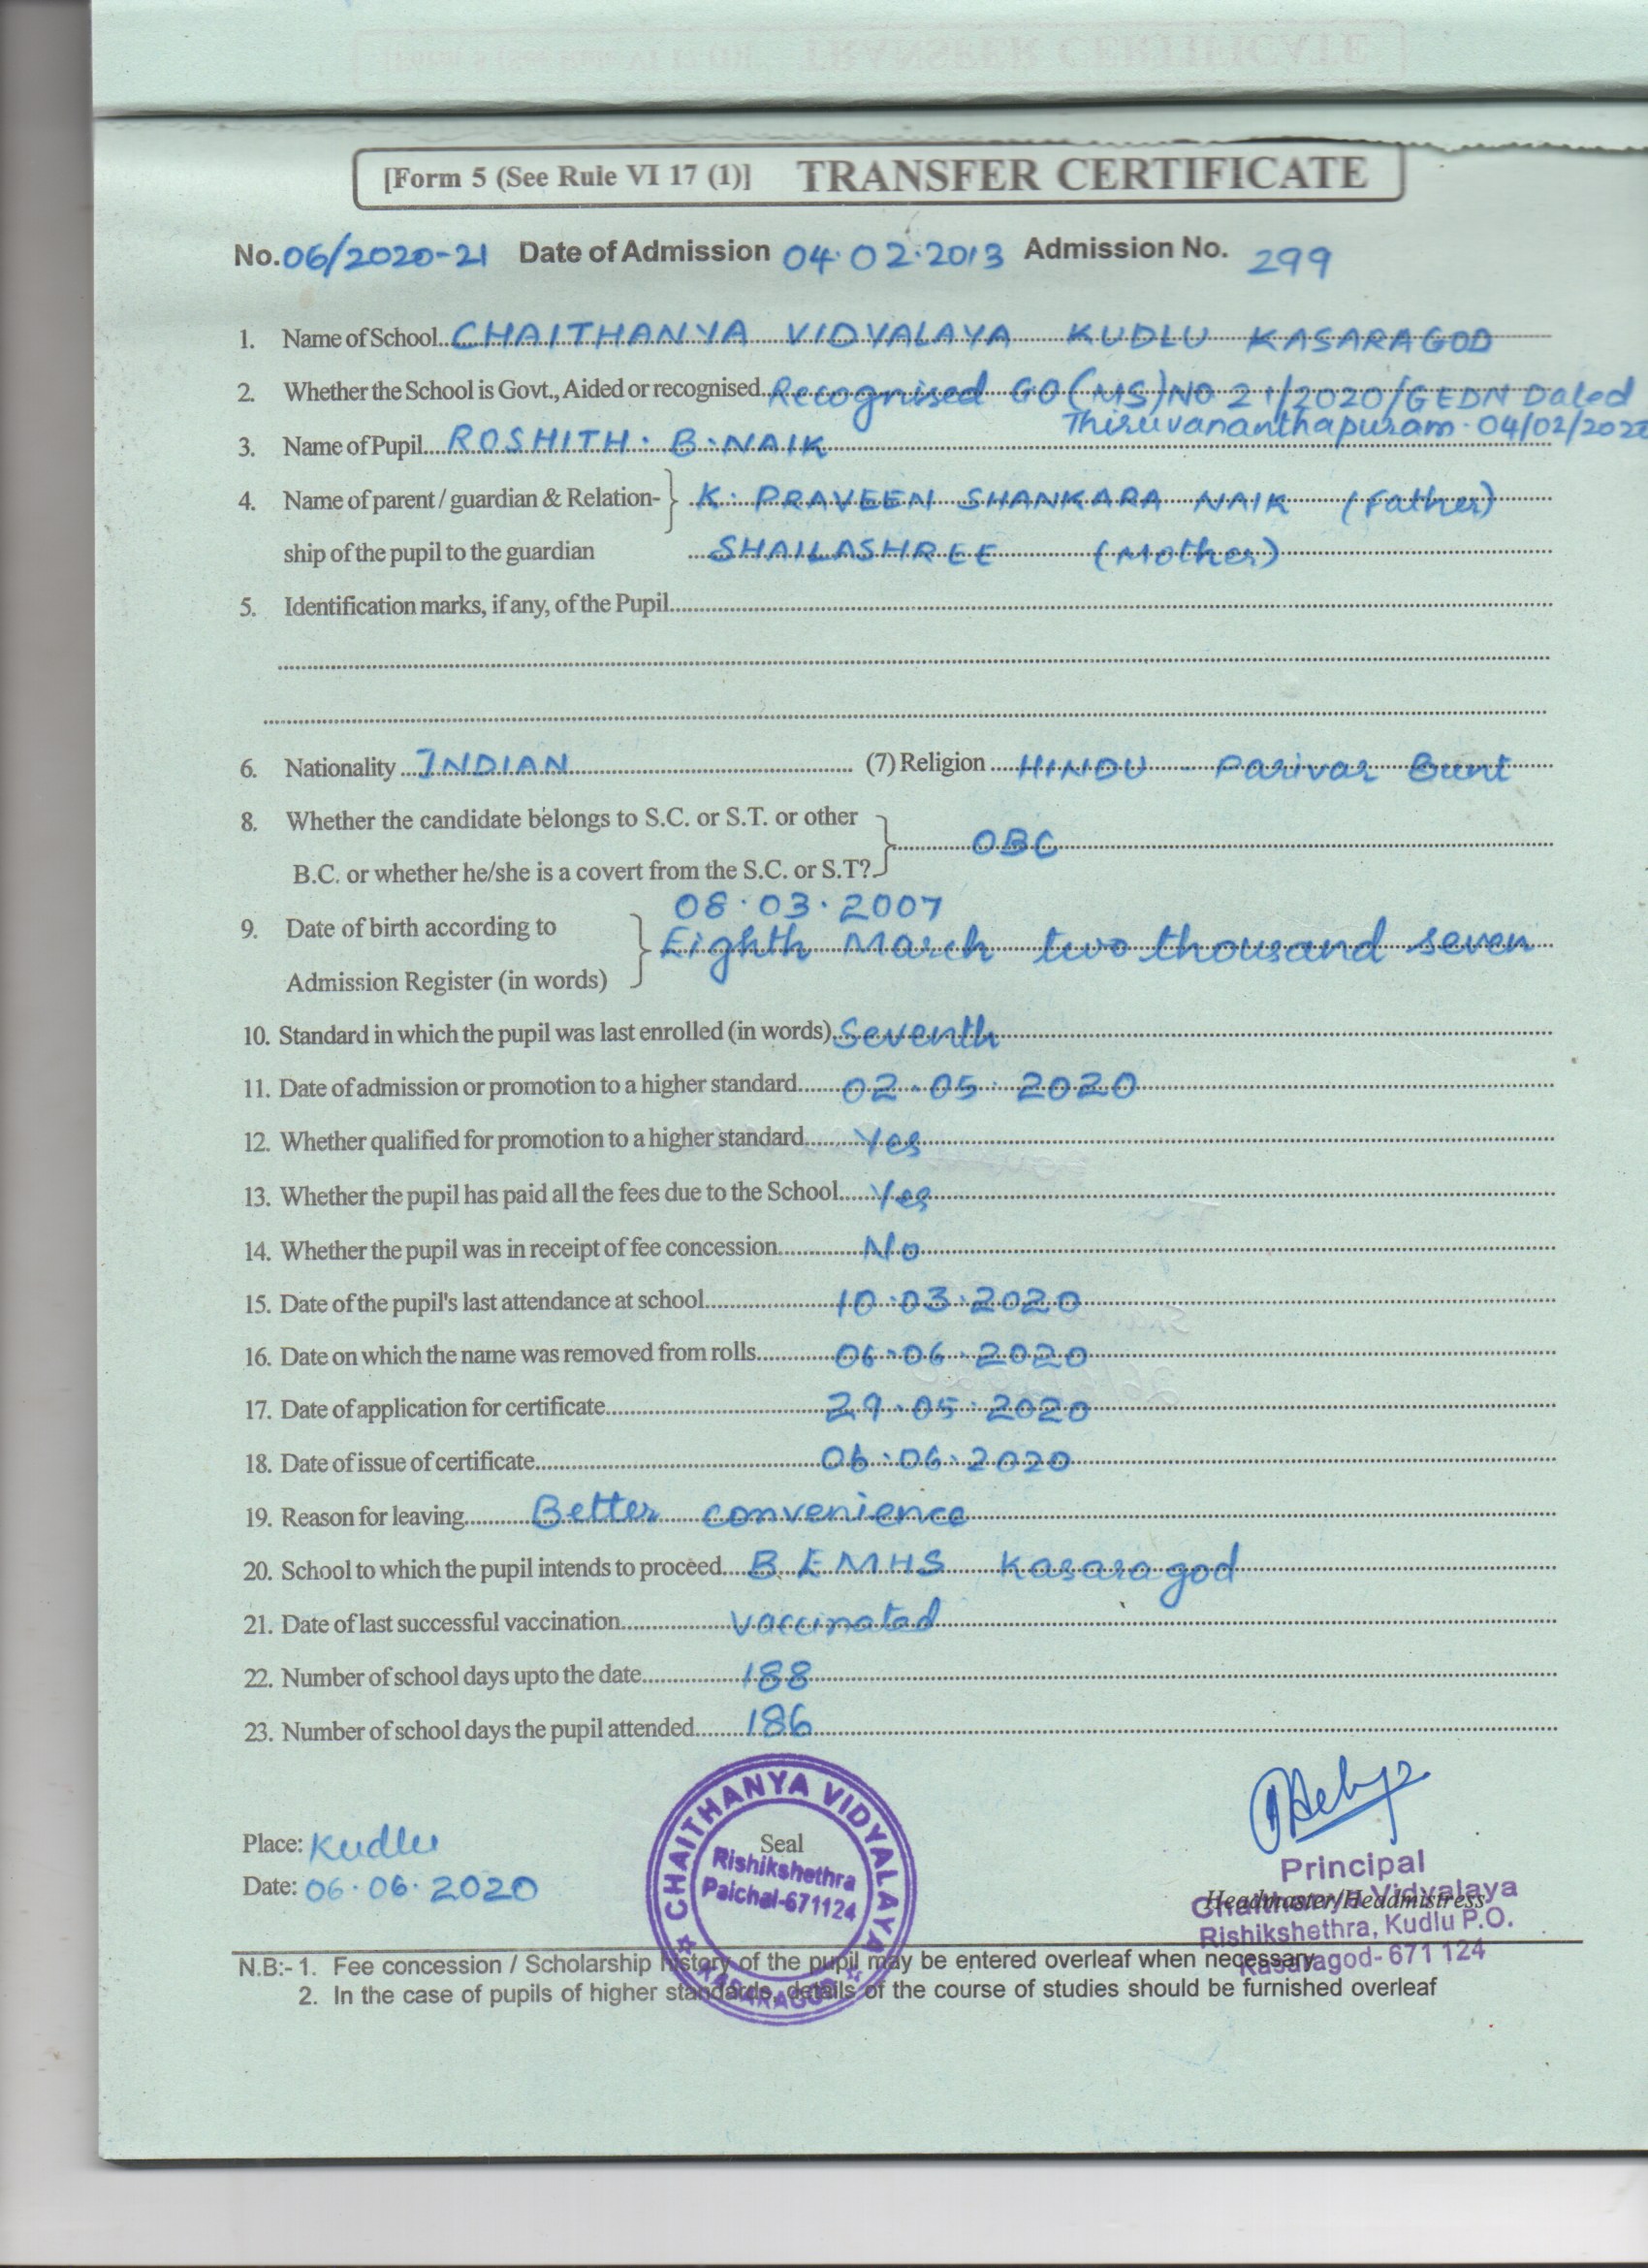 [Form 5 (See Rule VI 17 (1)] TRANSFER CERTIFICATE
No. 06/2020-21 Date of Admission 04.02.2013 Admission No. 299
1. Name of School CHAITHANYA VIDYALAYA KUDLU KASARAGOD
2. Whether the School is Govt., Aided or recognised Recognised GO(MS)NO 21/2020/GEDN Dated
Thiruvananthapuram. 04/02/2020
3. Name of Pupil ROSHITH. B. NAIK
4. Name of parent / guardian & Relation- K. PRAVEEN SHANKARA NAIK (Father)
ship of the pupil to the guardian SHAILASHREE (Mother)
5. Identification marks, if any, of the Pupil
6. Nationality INDIAN (7) Religion HINDU - Parivar Bunt
8. Whether the candidate belongs to S.C. or S.T. or other
OBC
B.C. or whether he/she is a covert from the S.C. or S.T?
08.03.2007
9. Date of birth according to
Eighth March two thousand seven
Admission Register (in words)
10. Standard in which the pupil was last enrolled (in words) Seventh
11. Date of admission or promotion to a higher standard 02.05.2020
12. Whether qualified for promotion to a higher standard Yes
13. Whether the pupil has paid all the fees due to the School Yes
14. Whether the pupil was in receipt of fee concession No
15. Date of the pupil's last attendance at school 10.03.2020
16. Date on which the name was removed from rolls 06.06.2020
17. Date of application for certificate 29.05.2020
18. Date of issue of certificate 06.06.2020
19. Reason for leaving Better convenience
20. School to which the pupil intends to proceed B E M H S Kasaragod
21. Date of last successful vaccination vaccinated
22. Number of school days upto the date 188
23. Number of school days the pupil attended 186
Place: Kudlu
Date: 06.06.2020
Seal
CHAITHANYA VIDYALAYA
Rishikshethra
Paichal-671124
KASARAGOD
Principal
Chaithanya Vidyalaya
Headmaster/Headmistress
Rishikshethra, Kudlu P.O.
Kasaragod- 671 124
N.B:- 1. Fee concession / Scholarship history of the pupil may be entered overleaf when necessary
2. In the case of pupils of higher standards, details of the course of studies should be furnished overleaf